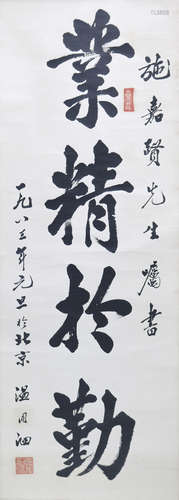 施嘉賢先生囑書
業精於勤
一九八三年元旦於北京 温同洄